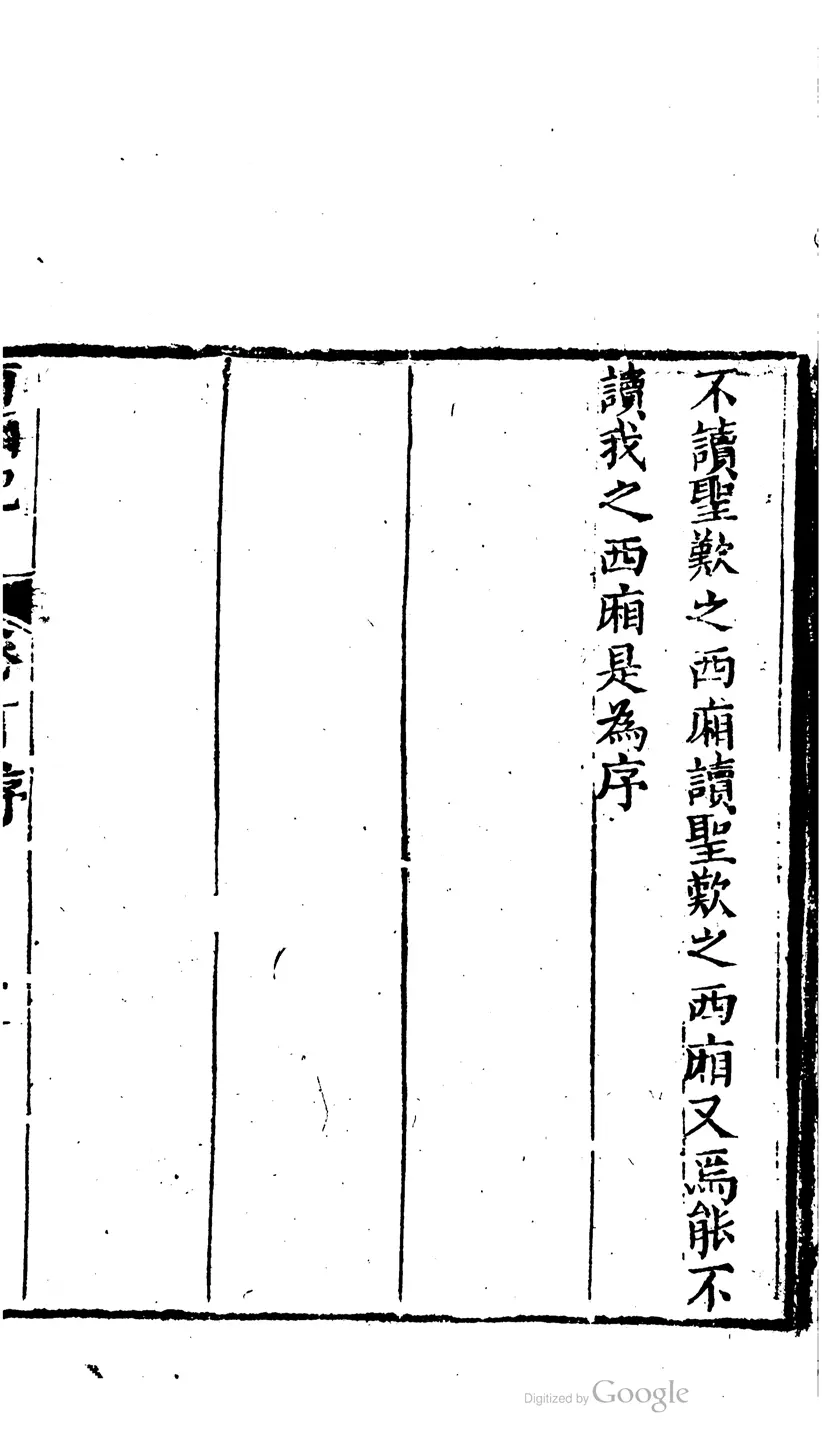 不讀聖歎之西廂讀聖歎之西廂又焉能不
讀我之西廂是為序
序
Digitized by Google